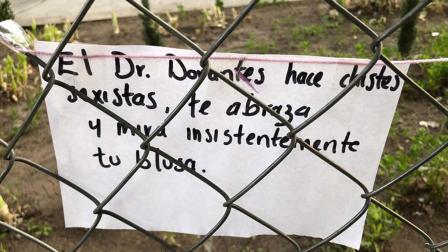 El Dr. Dorantes hace chistes
sexistas, te abraza
y mira insistentemente
tu blusa.